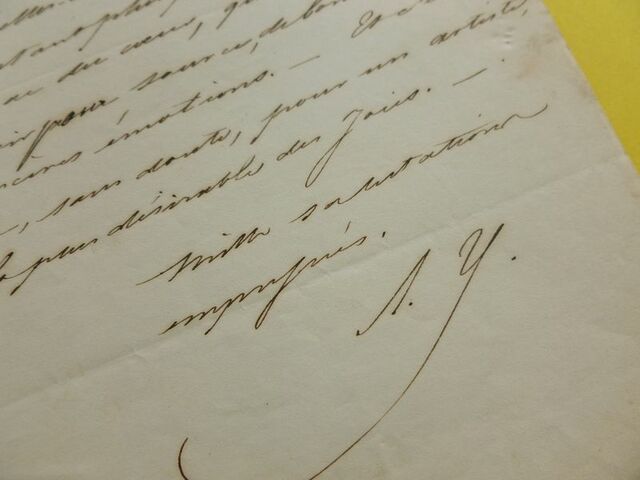 du cœur, qu
pour source, de bon
émotions. — Et c'e
, sans doute, pour un artiste,
plus désirable des Joies. —
Mille salutations
empressées.
A. Y.